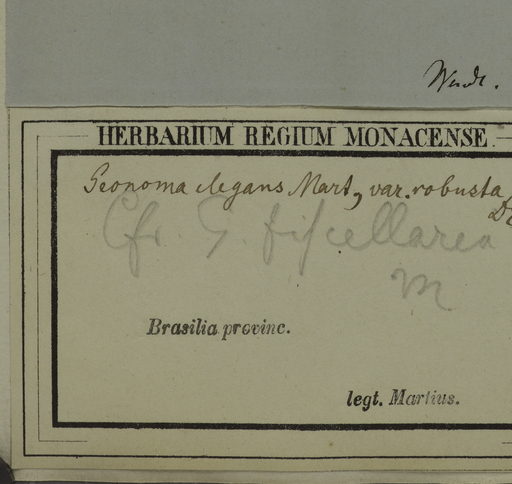 Wendl.
HERBARIUM REGIUM MONACENSE.
Geonoma elegans Mart, var. robusta
Dr
Cfr. G. fiscellaria
M
Brasilia provinc.
legt. Martius.